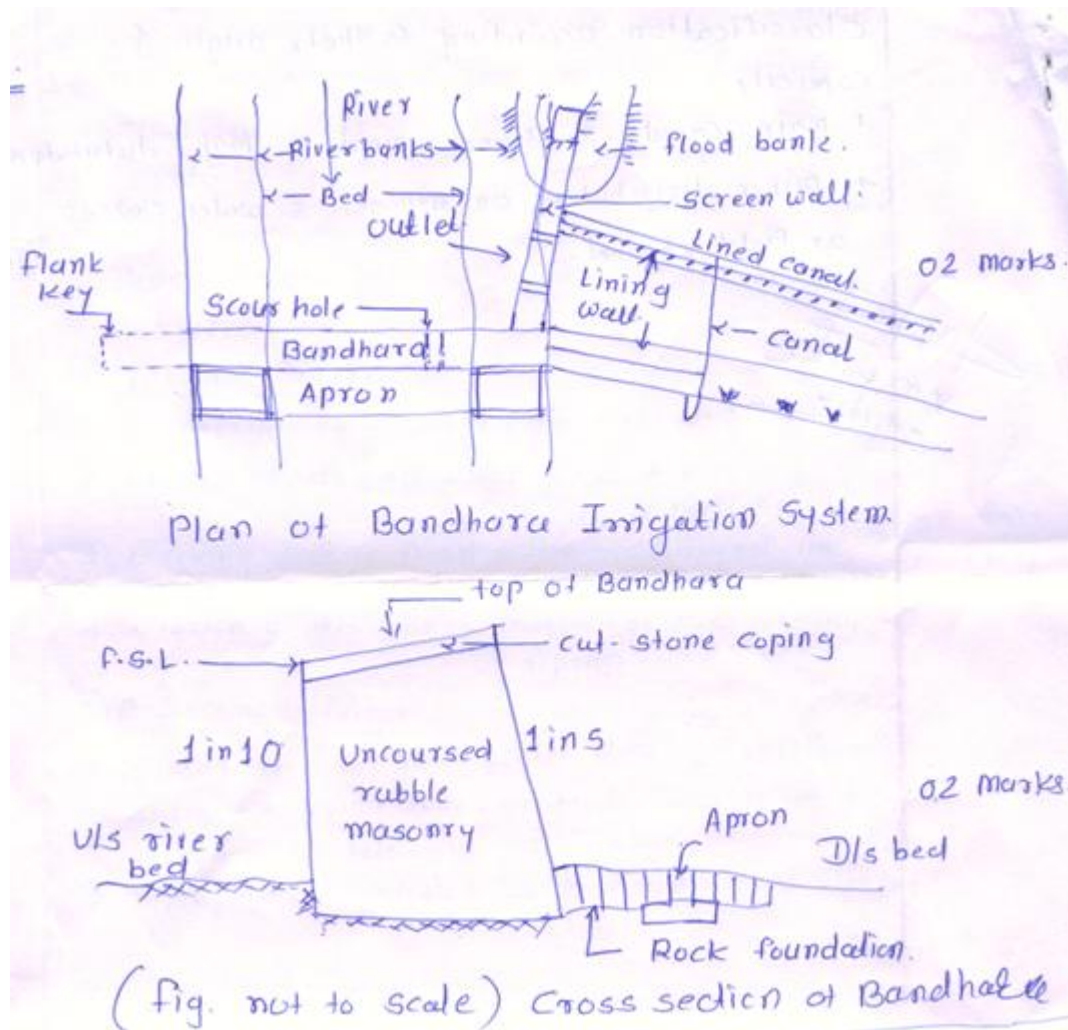 River
River banks
flood bank.
Bed
Screen wall
outlet
Lined canal.
02 marks.
flank
key
Lining
wall.
Scour hole
canal
Bandhara
Apron
Plan of Bandhara Irrigation System.
top of Bandhara
cut-stone coping
F.S.L.
1 in 10
Uncoursed
rubble
masonry
1 in 5
02 marks
U/s river
bed
Apron
D/s bed
Rock foundation.
(fig. not to scale) Cross section of Bandhara